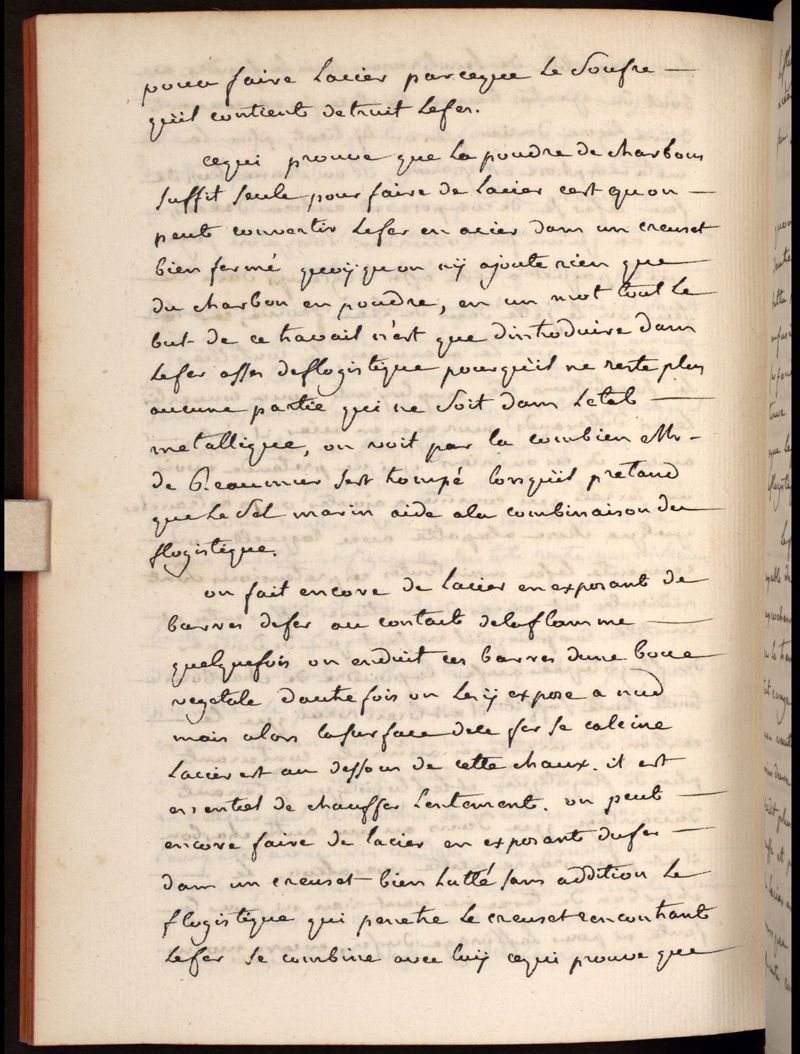 pour faire lacier parceque le Soufre —
quil contient detruit lefer.
cequi prouve que la poudre de charbon
suffit seule pour faire de lacier cest quon —
peut convertir lefer en acier dans un creuset
bien fermé quoyquon ny ajoute rien que
du charbon en poudre, en un mot tout le
but de ce travail n'est que dintroduire dans
lefer assés deflogistique pourquil ne reste plus
aucune partie qui ne soit dans letat —
metallique, on voit par la combien Mr. —
de Reaumur sest trompé lorsquil pretend
que le Sel marin aide ala combinaison du
flogistique.
on fait encore de lacier en exposant de
barres defer au contact delaflamme —
quelquefois on enduit ces barres dune boue
vegetale dautre fois on les y expose a nud
mais alors lasurface dece fer se calcine
lacier est au dessous de cette chaux. il est
essentiel de chauffer lentement. on peut —
encore faire de lacier en exposant dufer —
dans un creuset bien lutté sans addition le
flogistique qui penetre le creuset rencontrant
lefer se combine avec luy cequi prouve que